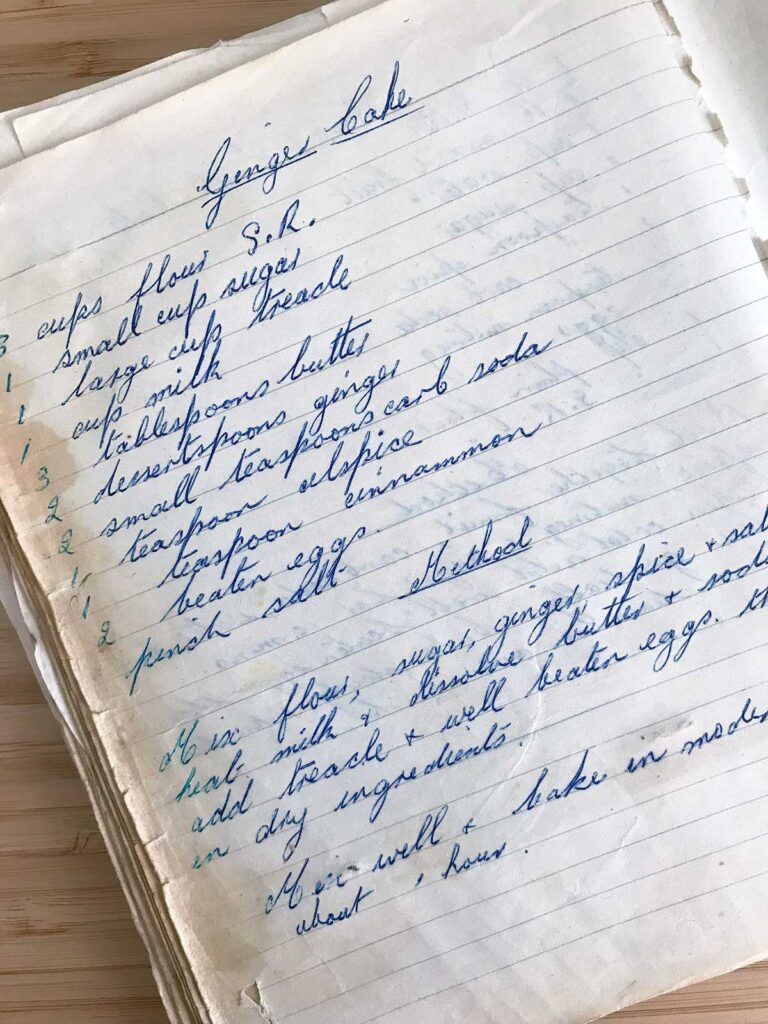 Ginger Cake
3 cups flour S.R.
1 small cup sugar
1 large cup treacle
1 cup milk
3 tablespoons butter
2 dessertspoons ginger
2 small teaspoons carb soda
1 teaspoon alspice
1 teaspoon cinnammon
2 beaten eggs.
pinch salt
Method
Mix flour, sugar, ginger spice + sal
heat milk + dissolve butter + soda
add treacle + well beaten eggs.
in dry ingredients.
Mix well + bake in moder
about hour.